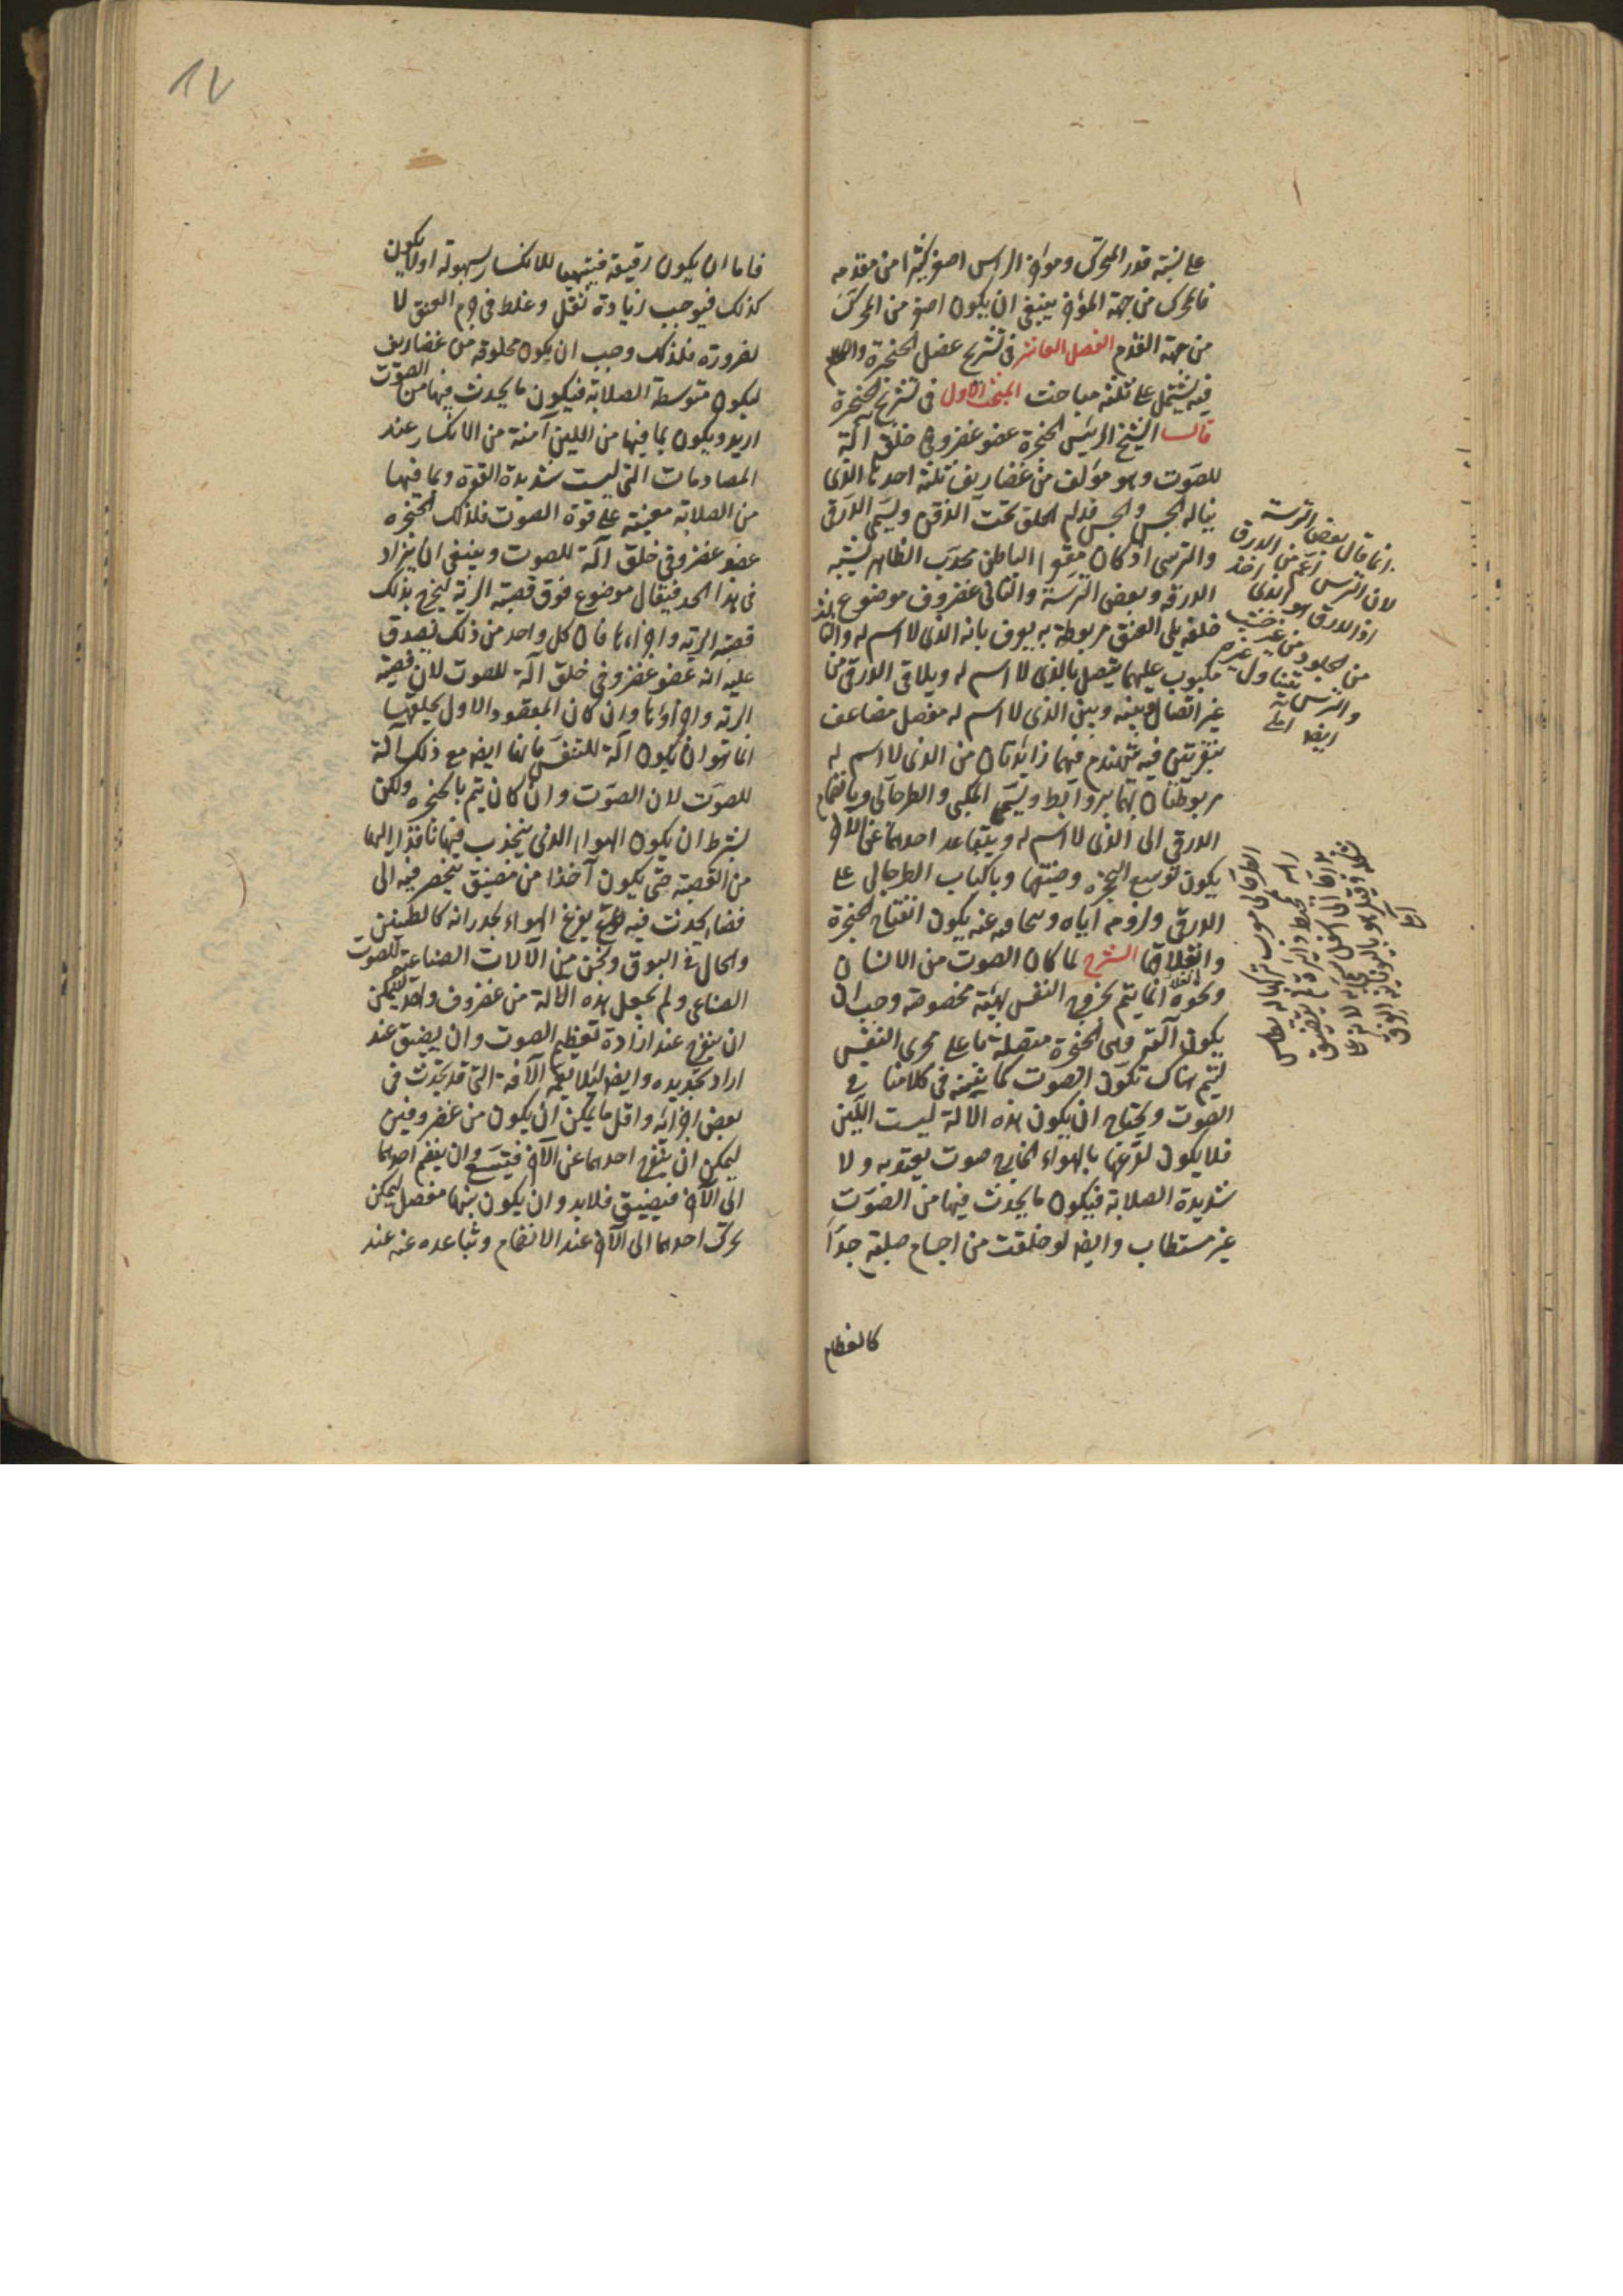 على نسبة قدر المتحرك ومؤخر الراس اصغر كثيرا من مقدمه
فالمحرك من جهة المؤخر ينبغي ان يكون اصغر من المحرك
من جهة القدم الفصل العاشر في تشريح عضل الحنجرة والكلام
فيه يشتمل على ثلثة مباحث المبحث الاول في تشريح الحنجرة
قال الشيخ الرئيس الحنجرة عضو غضروفي خلق آلة
للصوت وهو مؤلف من غضاريف ثلثة احدها الذي
يناله الجس والحس قدام الحلق تحت الذقن ويسمى الدرقي
والترسي اذ كان مقعر الباطن محدب الظاهر يشبه
الدرقة وبعض الترسة والثاني غضروف موضوع
خلفه يلي العنق مربوط به يعرف بانه الذي لا اسم له والثالث
مكبوب عليهما يتصل بالذي لا اسم له ويلاقي الدرقي من
غير اتصال وبينه وبين الذي لا اسم له مفصل مضاعف
بنقرتين فيه تهندم فيهما زائدتان من الذي لا اسم له
مربوطتان بهما بروابط ويسمى المكبي والطرجهالي وبانضمام
الدرقي الى الذي لا اسم له ويتباعد احدهما عن الآخر
يكون توسع الحنجرة وضيقها وبانكباب الطرجهالي على
الدرقي ولزومه اياه وبتجافيه عنه يكون انفتاح الحنجرة
وانغلاقها الشرح لما كان الصوت من الانسان
ونحوه انما يتم بخروج النفس بهيئة مخصوصة وجب ان
يكون آلته وهي الحنجرة متصلة بما على مجرى النفس
ليتم هناك تكون الصوت كما نبينه في كلامنا في
الصوت ويحتاج ان يكون هذه الالة ليست اللين
فلا يكون لقرعها بالهواء الخارج صوت يعتد به ولا
شديدة الصلابة فيكون ما يحدث فيها من الصوت
غير مستطاب وايضا لو خلقت من اجسام صلبة جدا
كالعظام
انما قال بعض الترسة
لان الترس اعم من الدرق
اذ الدرق هو الذي اخذ
من الجلود من غير خشب
والترس يتناول غيره
ايضا
١٧
فاما ان يكون رقيقة فيتهيا للانكسار بسهولة او لا يكون
كذلك فيوجب زيادة ثقل وغلظ في جرم العنق لا
لضرورة فلذلك وجب ان يكون مخلوقة من غضاريف
ليكون متوسطة الصلابة فيكون ما يحدث فيها من الصوت
اريد ويكون بما فيها من اللين آمنة من الانكسار عند
المصادمات التي ليست شديدة القوة وبما فيها
من الصلابة معينة على قوة الصوت فلذلك الحنجرة
عضو غضروفي خلق آلة للصوت وينبغي ان يزاد
في هذا الحد فيقال موضوع فوق قصبة الرئة ليخرج بذلك
قصبة الرئة واجزاءها فان كل واحد من ذلك يصدق
عليه انه عضو غضروفي خلق آلة للصوت لان قصبة
الرئة واجزاءها وان كان المقصود الاول بخلقها
انما هو ان يكون آلة للتنفس فانها ايضا مع ذلك آلة
للصوت لان الصوت وان كان يتم بالحنجرة ولكن
بشرط ان يكون الهواء الذي ينجذب فيها نافذا اليها
من القصبة حتى يكون آخذا من مضيق ينحصر فيه الى
فضاء يحدث فيه قرع الهواء لجدرانه كالطنين
والحال في البوق ونحوه من الآلات الصناعية للصوت
الصناعي ولم يجعل هذه الآلة من غضروف واحد ليمكن
ان ينفرج عند ارادة تعظيم الصوت وان يضيق عند
اراد تحديده وايضا لئلا يعم الآفة التي قد تحدث في
بعض اجزائه واقل ما يمكن ان يكون من غضروفين
ليمكن ان ينفرج احدهما عن الآخر فيتسع وان ينضم احدهما
الى الآخر فيضيق فلا بد وان يكون بينهما مفصل ليمكن
تحرك احدهما الى الآخر عند الانضمام وتباعده عنه عند